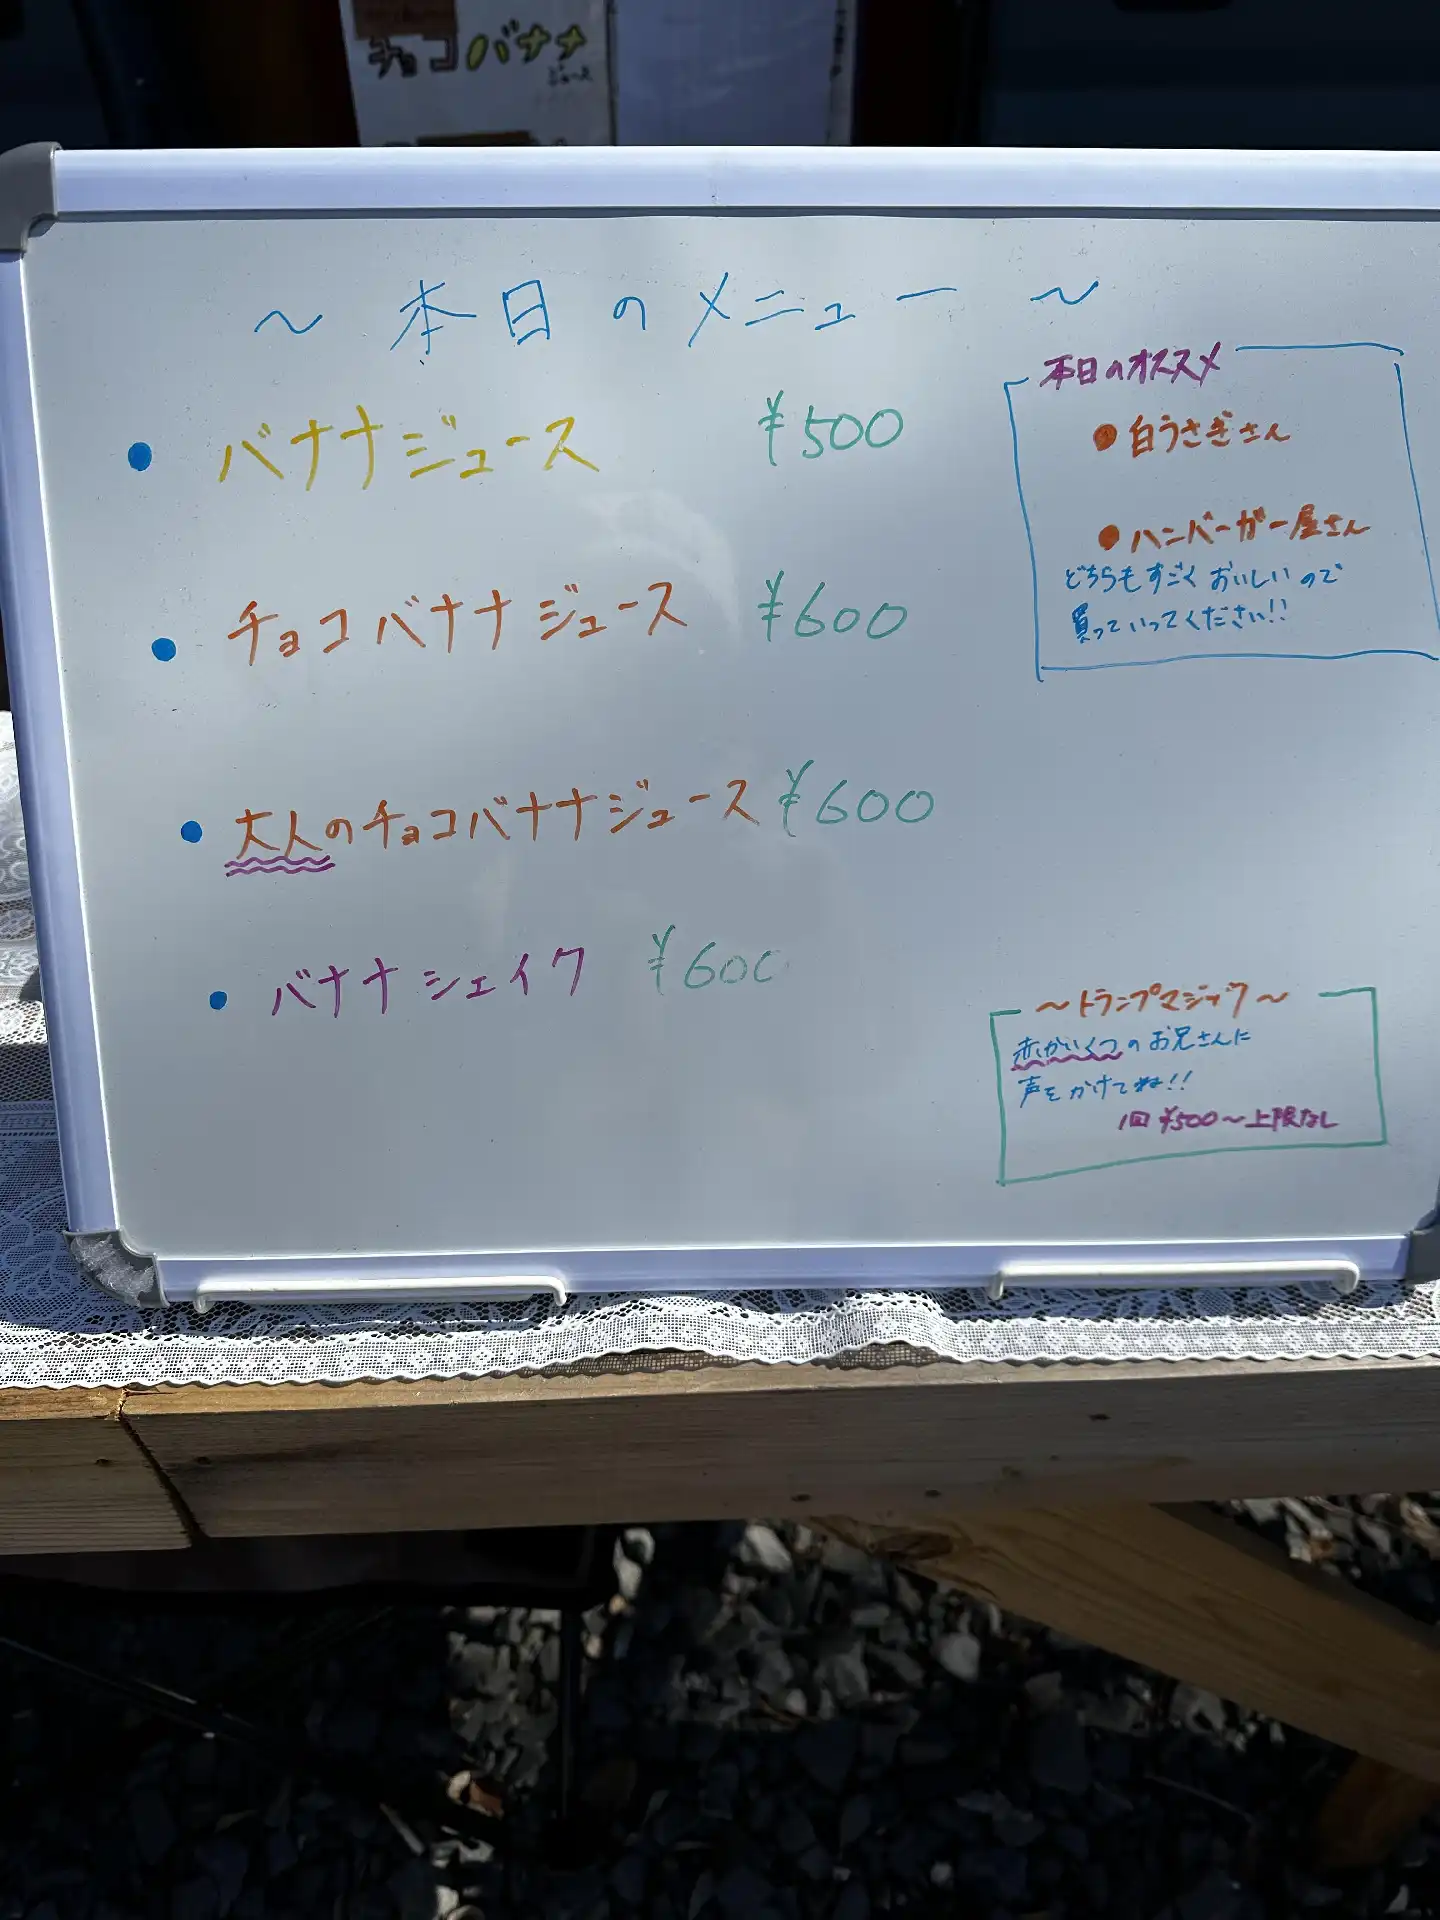 チョコバナナ
ジュース
～ 本日のメニュー ～
● バナナジュース ¥500
● チョコバナナジュース ¥600
● 大人のチョコバナナジュース ¥600
● バナナシェイク ¥600
本日のオススメ
● 白うさぎさん
● ハンバーガー屋さん
どちらもすごくおいしいので
買っていってください!!
～トランプマジック～
赤かいくつのお兄さんに
声をかけてね!!
1回 ¥500～上限なし